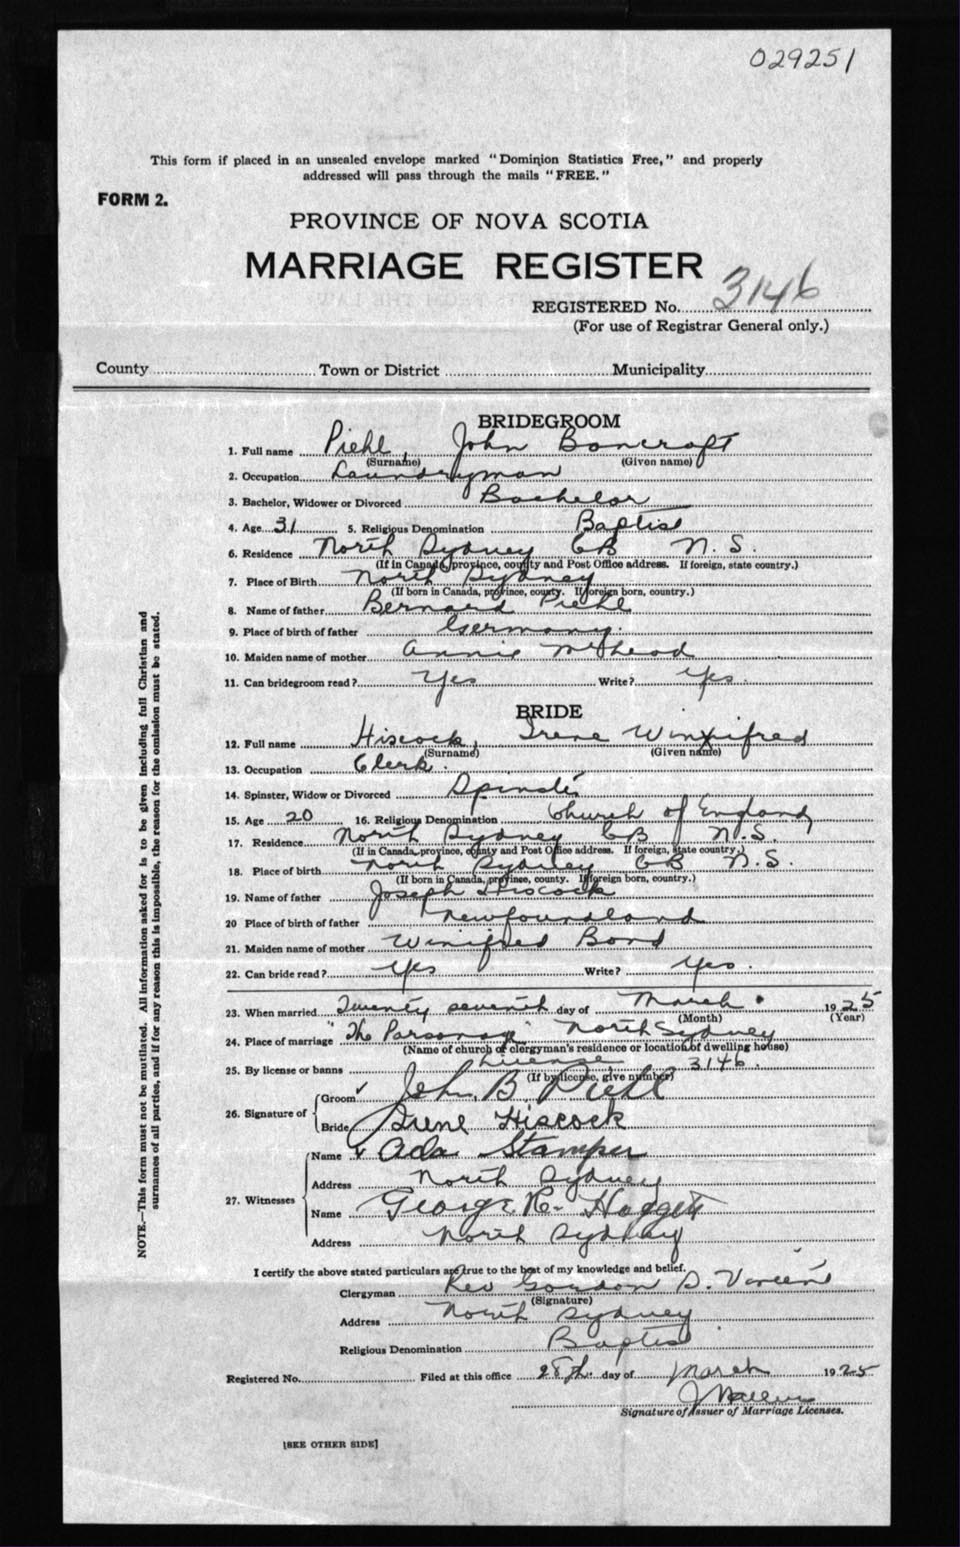 029251
This form if placed in an unsealed envelope marked "Dominion Statistics Free," and properly
addressed will pass through the mails "FREE."
FORM 2.
PROVINCE OF NOVA SCOTIA
MARRIAGE REGISTER
REGISTERED No. 3146
(For use of Registrar General only.)
County Town or District Municipality
BRIDEGROOM
1. Full name Piehl, John Boncroft
(Surname) (Given name)
2. Occupation Laundryman
3. Bachelor, Widower or Divorced Bachelor
4. Age 31 5. Religious Denomination Baptist
6. Residence North Sydney CB N.S.
(If in Canada, province, county and Post Office address. If foreign, state country.)
7. Place of Birth North Sydney
(If born in Canada, province, county. If foreign born, country.)
8. Name of father Bernard Piehl
9. Place of birth of father Germany.
10. Maiden name of mother Annie McLeod
11. Can bridegroom read? Yes Write? Yes.
BRIDE
12. Full name Hiscock, Irene Winifred
(Surname) (Given name)
13. Occupation Clerk.
14. Spinster, Widow or Divorced Spinster
15. Age 20 16. Religious Denomination Church of England
17. Residence North Sydney CB N.S.
(If in Canada, province, county and Post Office address. If foreign, state country.)
18. Place of birth North Sydney CB N.S.
(If born in Canada, province, county. If foreign born, country.)
19. Name of father Joseph Hiscock
20 Place of birth of father Newfoundland
21. Maiden name of mother Winifred Bond
22. Can bride read? Yes Write? Yes.
23. When married Twenty seventh day of March. 1925
(Month) (Year)
24. Place of marriage "The Parsonage" North Sydney
(Name of church of clergyman's residence or location of dwelling house)
25. By license or banns License 3146.
(If by license, give number)
26. Signature of
Groom John. B. Piehl
Bride Irene Hiscock
27. Witnesses
Name Ada Stamper
Address North Sydney
Name George R.
Address North Sydney
I certify the above stated particulars are true to the best of my knowledge and belief.
Clergyman Rev Gordon D. Vincent
(Signature)
Address North Sydney
Religious Denomination Baptist
Registered No. Filed at this office 28th. day of March 1925
Signature of Issuer of Marriage Licenses.
[SEE OTHER SIDE]
NOTE.—This form must not be mutilated. All information asked for is to be given including full Christian and
surnames of all parties, and if for any reason this is impossible, the reason for the omission must be stated.